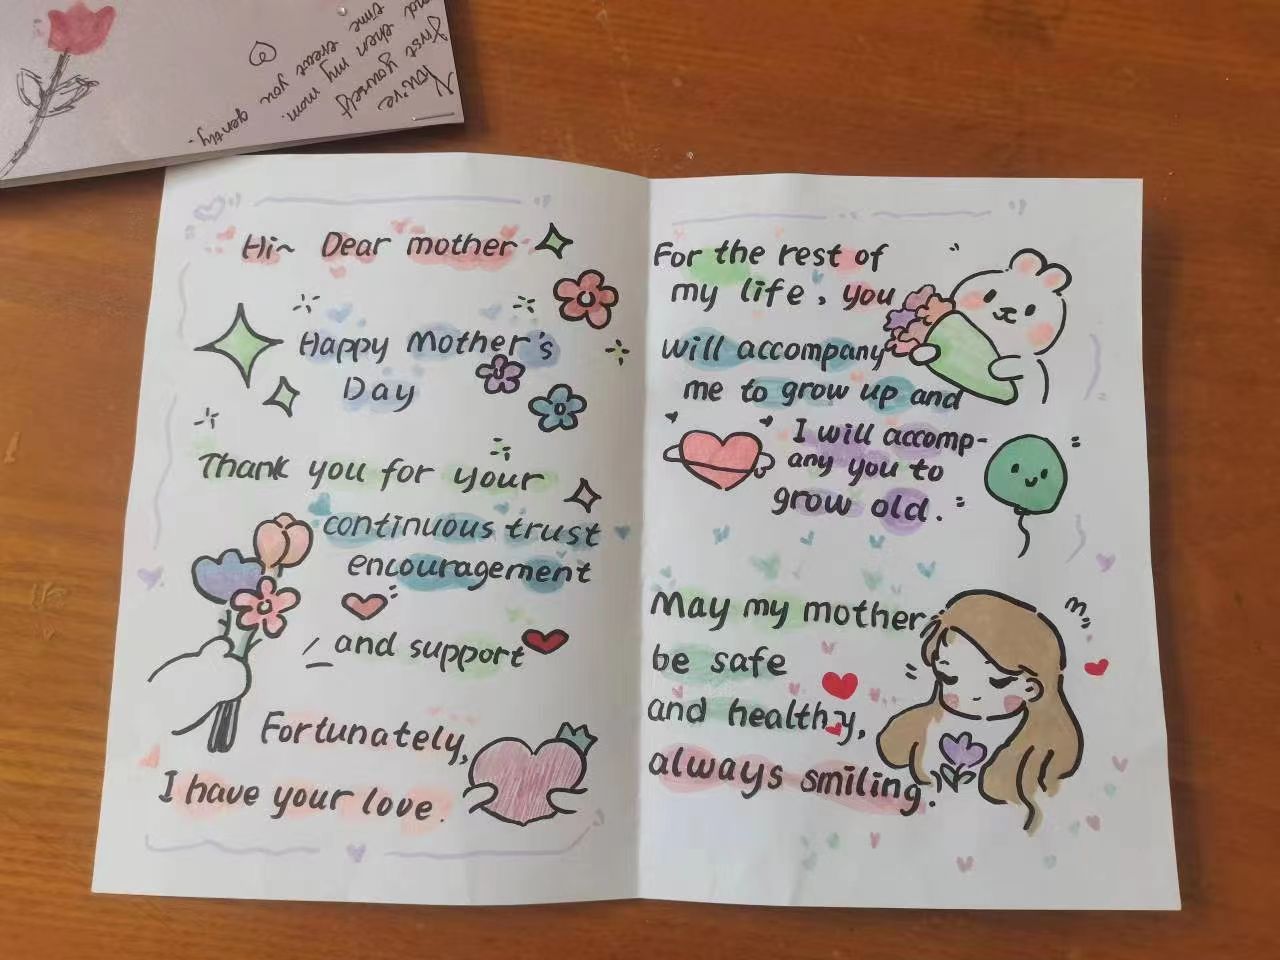 You're
first yourself
and then my mom.
time treat you gently.
Hi~ Dear mother
Happy Mother's
Day
Thank you for your
continuous trust
encouragement
and support
Fortunately,
I have your love.
For the rest of
my life, you
will accompany
me to grow up and
I will accomp-
any you to
grow old.
May my mother
be safe
and healthy,
always smiling.